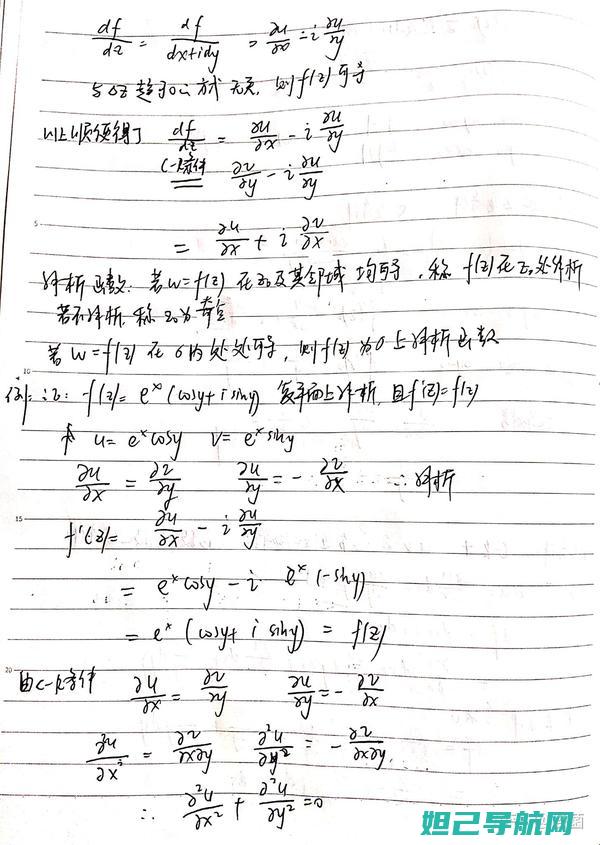 df/dz = df/dx+idy = ∂u/∂x - i ∂u/∂y
与Δz趋于0的方式无关, 则f(z)可导
以上顺便得了 df/dz = ∂u/∂x - i ∂u/∂y
C-R条件 ∂v/∂y - i ∂u/∂y
5
= ∂u/∂x + i ∂v/∂x
解析函数: 若w=f(z) 在z₀及其邻域 均可导, 称 f(z)在z₀处解析
若不解析, 称z₀为奇点
若 w=f(z) 在 σ内处处可导, 则f(z)为σ上解析函数
10
例: 证: f(z)= eˣ(cosy+isiny) 复平面上解析, 且f'(z)=f(z)
u= eˣcosy v= eˣsiny
∂u/∂x = ∂v/∂y ∂u/∂y = - ∂v/∂x ∴解析
15
f'(z)= ∂u/∂x - i ∂u/∂y
= eˣcosy - i eˣ(-siny)
= eˣ(cosy+ i siny) = f(z)
20
由C-R条件 ∂u/∂x = ∂v/∂y ∂u/∂y = - ∂v/∂x
∂²u/∂x² = ∂²v/∂x∂y ∂²u/∂y² = - ∂²v/∂x∂y
∴ ∂²u/∂x² + ∂²u/∂y² =0
妲己导航网